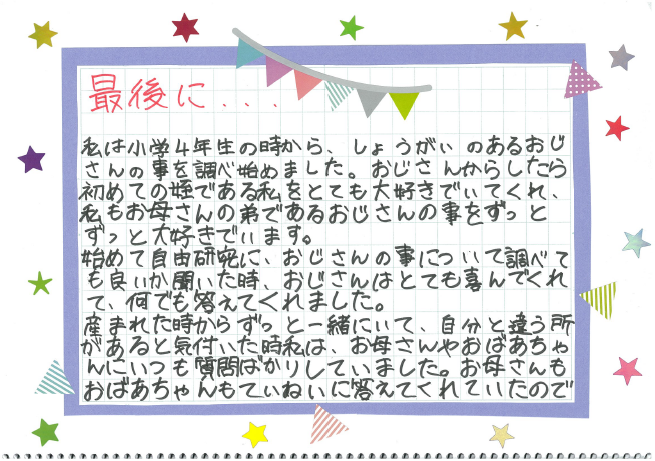 最後に...
私は小学4年生の時から、しょうがいのあるおじ
さんの事を調べ始めました。おじさんからしたら
初めての姪である私をとても大好きでいてくれ、
私もお母さんの弟であるおじさんの事をずっと
ずっと大好きでいます。
始めて自由研究に、おじさんの事について調べて
も良いか聞いた時、おじさんはとても喜んでくれ
て、何でも答えてくれました。
産まれた時からずっと一緒にいて、自分と違う所
があると気付いた時私は、お母さんやおばあちゃ
んにいつも質問ばかりしていました。お母さんも
おばあちゃんもていねいに答えてくれていたので